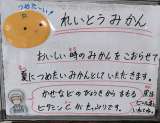 つめたい!
れいとうみかん
おいしい時のみかんをこおらせて
夏につめたいみかんとしていただきます。
かぜなどのびょうきからまもる
ビタミンCがたっぷり です。